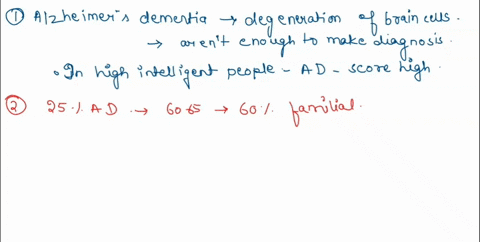 ① Alzheimer's dementia → degeneration of brain cells.
→ aren't enough to make diagnosis.
• In high intelligent people - AD - score high.
② 25% AD → 60 65 → 60% familial.